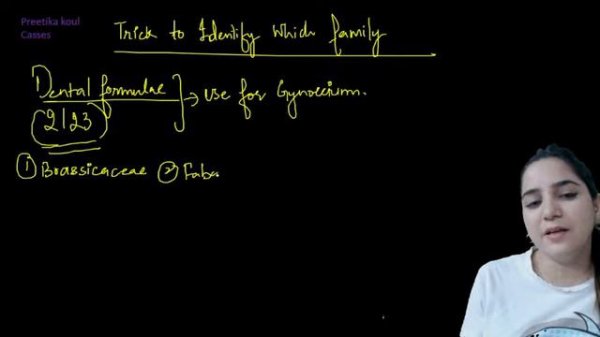 Preetika koul
Casses
Trick to Identify Which family
1) Dental formulae → Use for Gynoecium.
2123
① Brassicaceae ② Faba